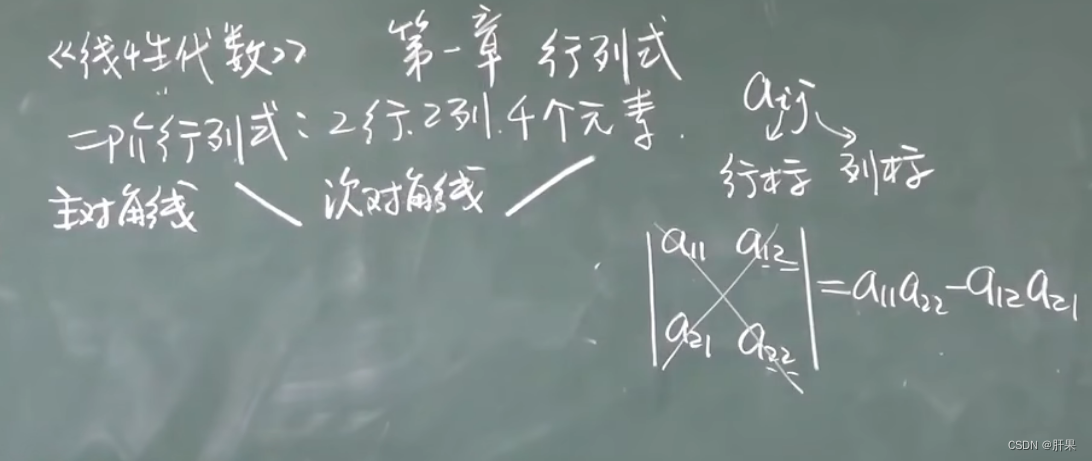 《线性代数》 第一章 行列式
二阶行列式：2行.2列.4个元素.
主对角线 次对角线
aij
行标 列标
a11 a12
a21 a22
=a11a22-a12a21
CSDN @肝果